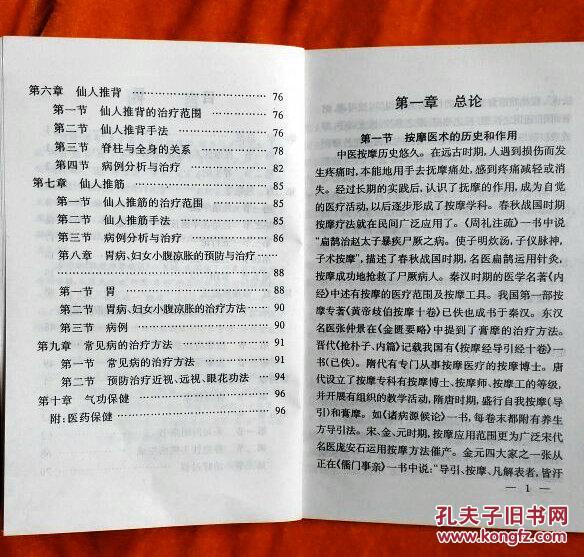 第六章 仙人推背 …………………… 76
第一节 仙人推背的治疗范围 ………… 76
第二节 仙人推背手法 ………………… 76
第三节 脊柱与全身的关系 …………… 78
第四节 病例分析与治疗 ……………… 82
第七章 仙人推筋 …………………… 85
第一节 仙人推筋的治疗范围 ………… 85
第二节 仙人推筋手法 ………………… 85
第三节 病例分析与治疗 ……………… 86
第八章 胃病、妇女小腹凉胀的预防与治疗……
…………………………………… 88
第一节 胃 …………………………… 88
第二节 胃病、妇女小腹凉胀的治疗方法 … 90
第三节 病例 ………………………… 90
第九章 常见病的治疗方法 …………… 91
第一节 常见病的治疗方法 …………… 91
第二节 预防治疗近视、远视、眼花功法 … 94
第十章 气功保健 …………………… 96
附:医药保健 ………………………… 96
第一章 总论
第一节 按摩医术的历史和作用
中医按摩历史悠久。在远古时期,人遇到损伤而发
生疼痛时,本能地用手去抚摩痛处,感到疼痛减轻或消
失。经过长期的实践后,认识了抚摩的作用,成为自觉
的医疗活动,以后逐步形成了按摩学科。春秋战国时期
按摩疗法就在民间广泛应用了。《周礼注疏》一书中说
“扁鹊治赵太子暴疾尸厥之病。使子明炊汤,子仪脉神,
子术按摩”,描述了春秋战国时期,名医扁鹊运用针灸、
按摩成功地抢救了尸厥病人。秦汉时期的医学名著《内
经》中述有按摩的医疗范围及按摩工具。我国第一部按
摩专著《黄帝歧伯按摩十卷》已佚也成书于秦汉。东汉
名医张仲景在《金匮要略》中提到了膏摩的治疗方法。
晋代《抢朴子、内篇》记载我国有《按摩经导引经十卷》一
书(已佚)。隋代有专门从事按摩医疗的按摩博士。唐
代设立了按摩专科有按摩博士、按摩师、按摩工的等级,
并开展有组织的教学活动,隋唐时期,盛行自我按摩(导
引)和膏摩。如《诸病源候论》一书,每卷末都附有养生
方导引法。宋、金、元时期,按摩应用范围更为广泛宋代
名医庞安石运用按摩方法催产。金元四大家之一张从
正在《儒门事亲》一书中说:“导引、按摩、凡解表者,皆汗
— 1 —
孔夫子旧书网
www.kongfz.com